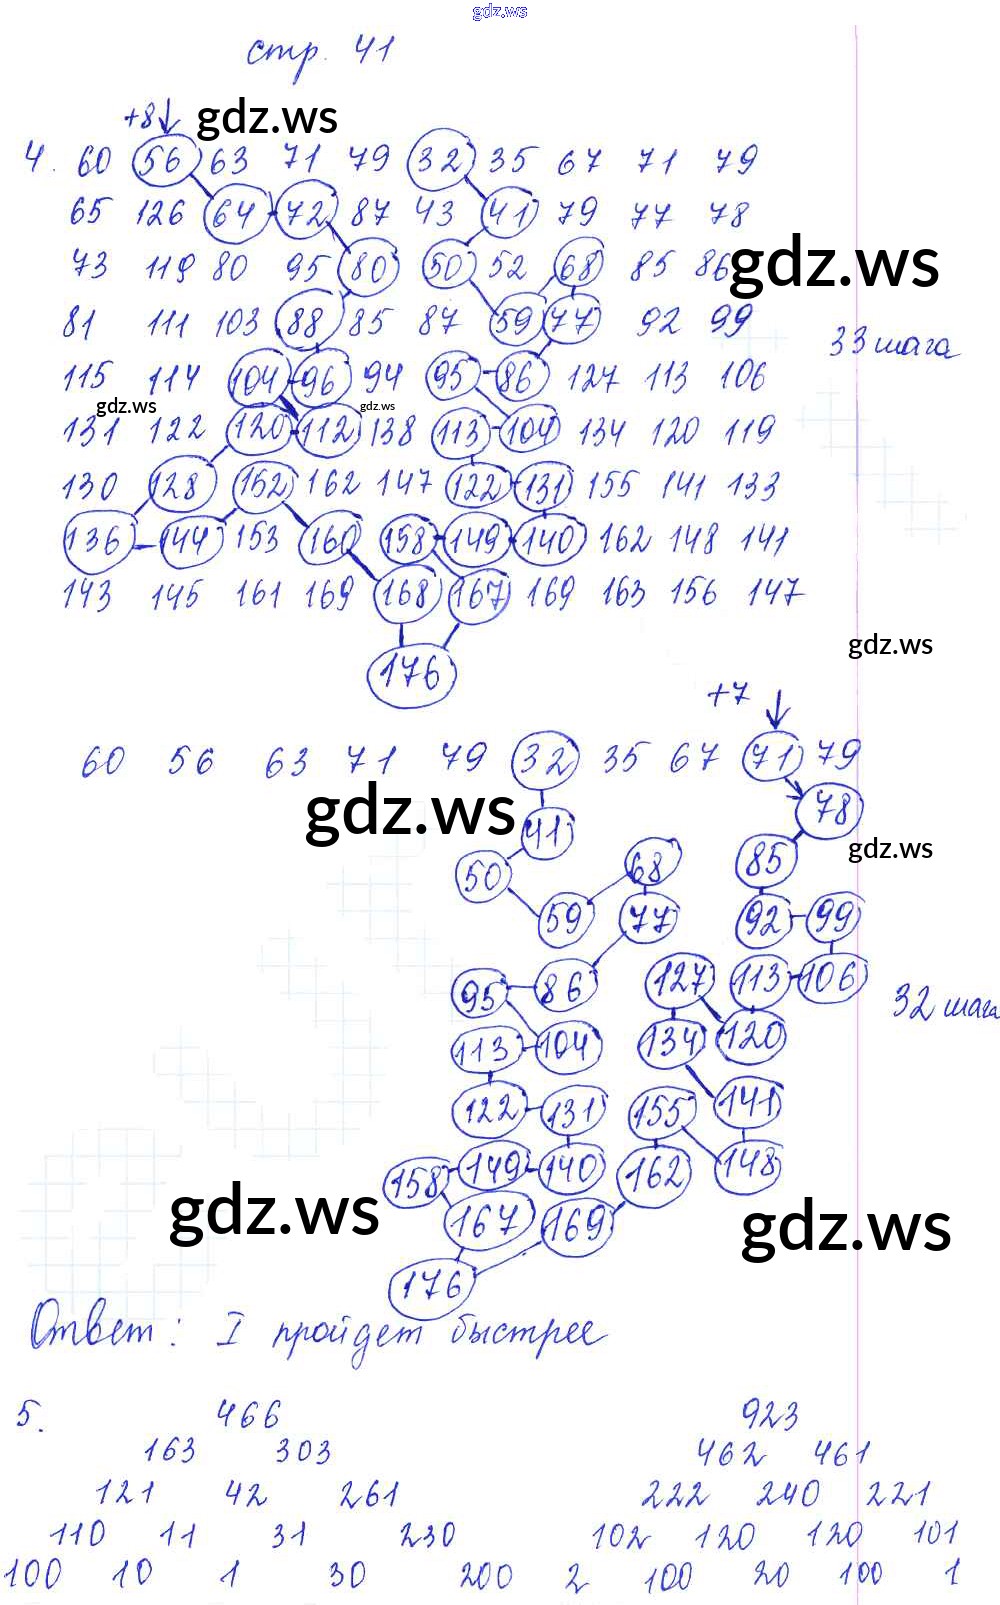 gdz.ws
стр. 41
+8 gdz.ws
4. 60 56 63 71 79 32 35 67 71 79
65 126 64 72 87 43 41 79 77 78
73 119 80 95 80 50 52 68 85 86
gdz.ws
81 111 103 88 85 87 59 77 92 99
33 шага
115 114 104 96 94 95 86 127 113 106
gdz.ws gdz.ws
131 122 120 112 138 113 104 134 120 119
130 128 152 162 147 122 131 155 141 133
136 144 153 160 158 149 140 162 148 141
143 145 161 169 168 167 169 163 156 147
gdz.ws
176
+7
60 56 63 71 79 32 35 67 71 79
gdz.ws
41 78
gdz.ws
50 68 85
59 77 92 99
95 86 127 113 106
32 шага
113 104 134 120
122 131 155 141
158 149 140 162 148
gdz.ws gdz.ws
167 169
176
Ответ: I пройдет быстрее
5. 466 923
163 303 462 461
121 42 261 222 240 221
110 11 31 230 102 120 120 101
100 10 1 30 200 2 100 20 100 1